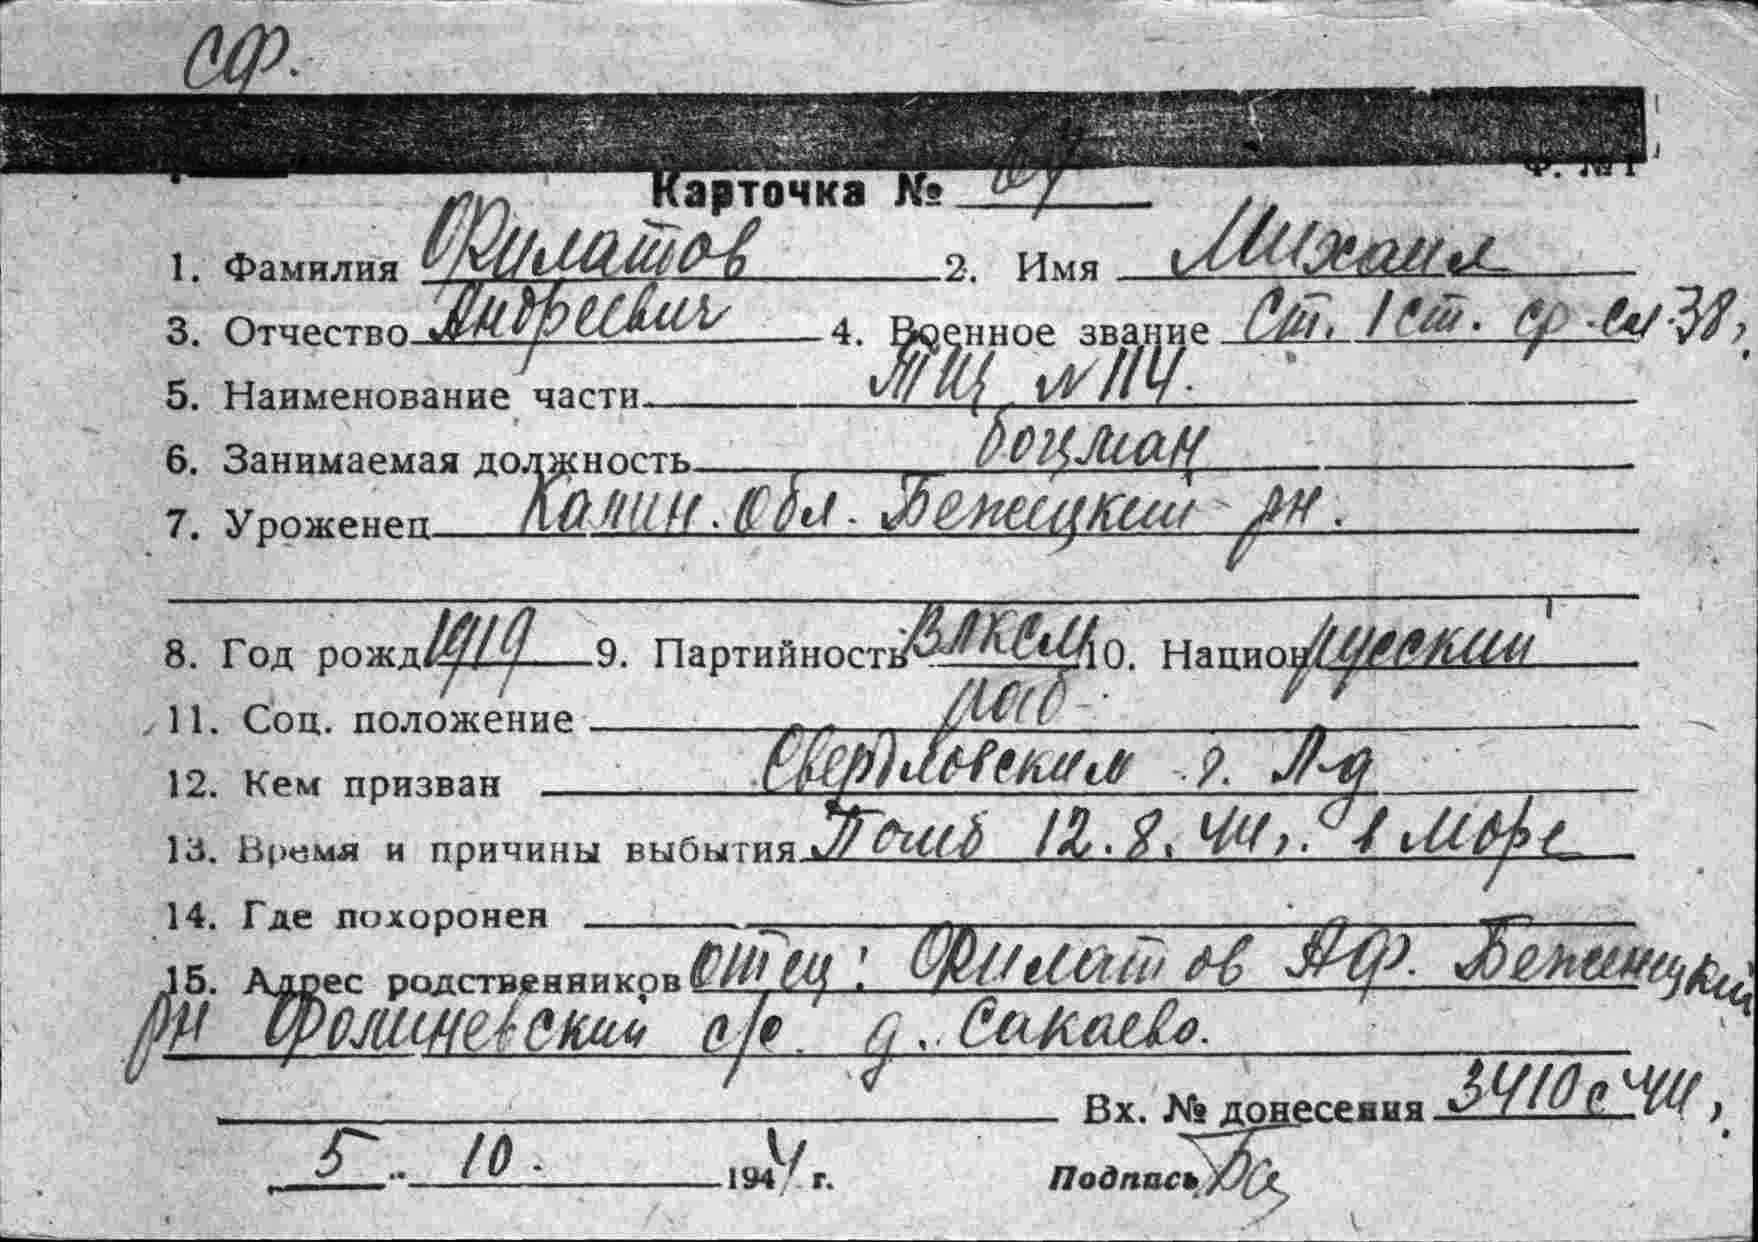 СФ.
Ф. №1
Карточка № 67
1. Фамилия Филатов 2. Имя Михаил
3. Отчество Андреевич 4. Военное звание Ст. 1 ст. ср. сл. 38г.
5. Наименование части ТЩ N 114.
6. Занимаемая должность боцман
7. Уроженец Калин. обл. Бежецкий рн.
8. Год рожд 1919 9. Партийность ВЛКСМ 10. Национ русский
11. Соц. положение раб.
12. Кем призван Свердловским г. Л-д
13. Время и причины выбытия Погиб 12.8.44г. в море
14. Где похоронен
15. Адрес родственников отец: Филатов А.Ф. Беженецкий
рн Фолиневский с/с. д. Сакаево.
Вх. № донесения 3410с 44г.
5. 10. 1944 г. Подпись